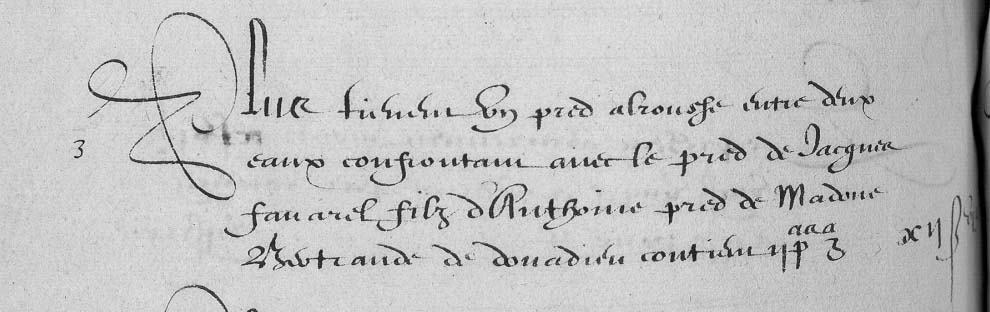 Plus tienent ung pred al rouche entre deux
3 eaux confrontant avec le pred de Jacques
favarel filz d'Anthoine pred de Madone
Bertrande de donadieu contient ii p aaa 3 xii ß